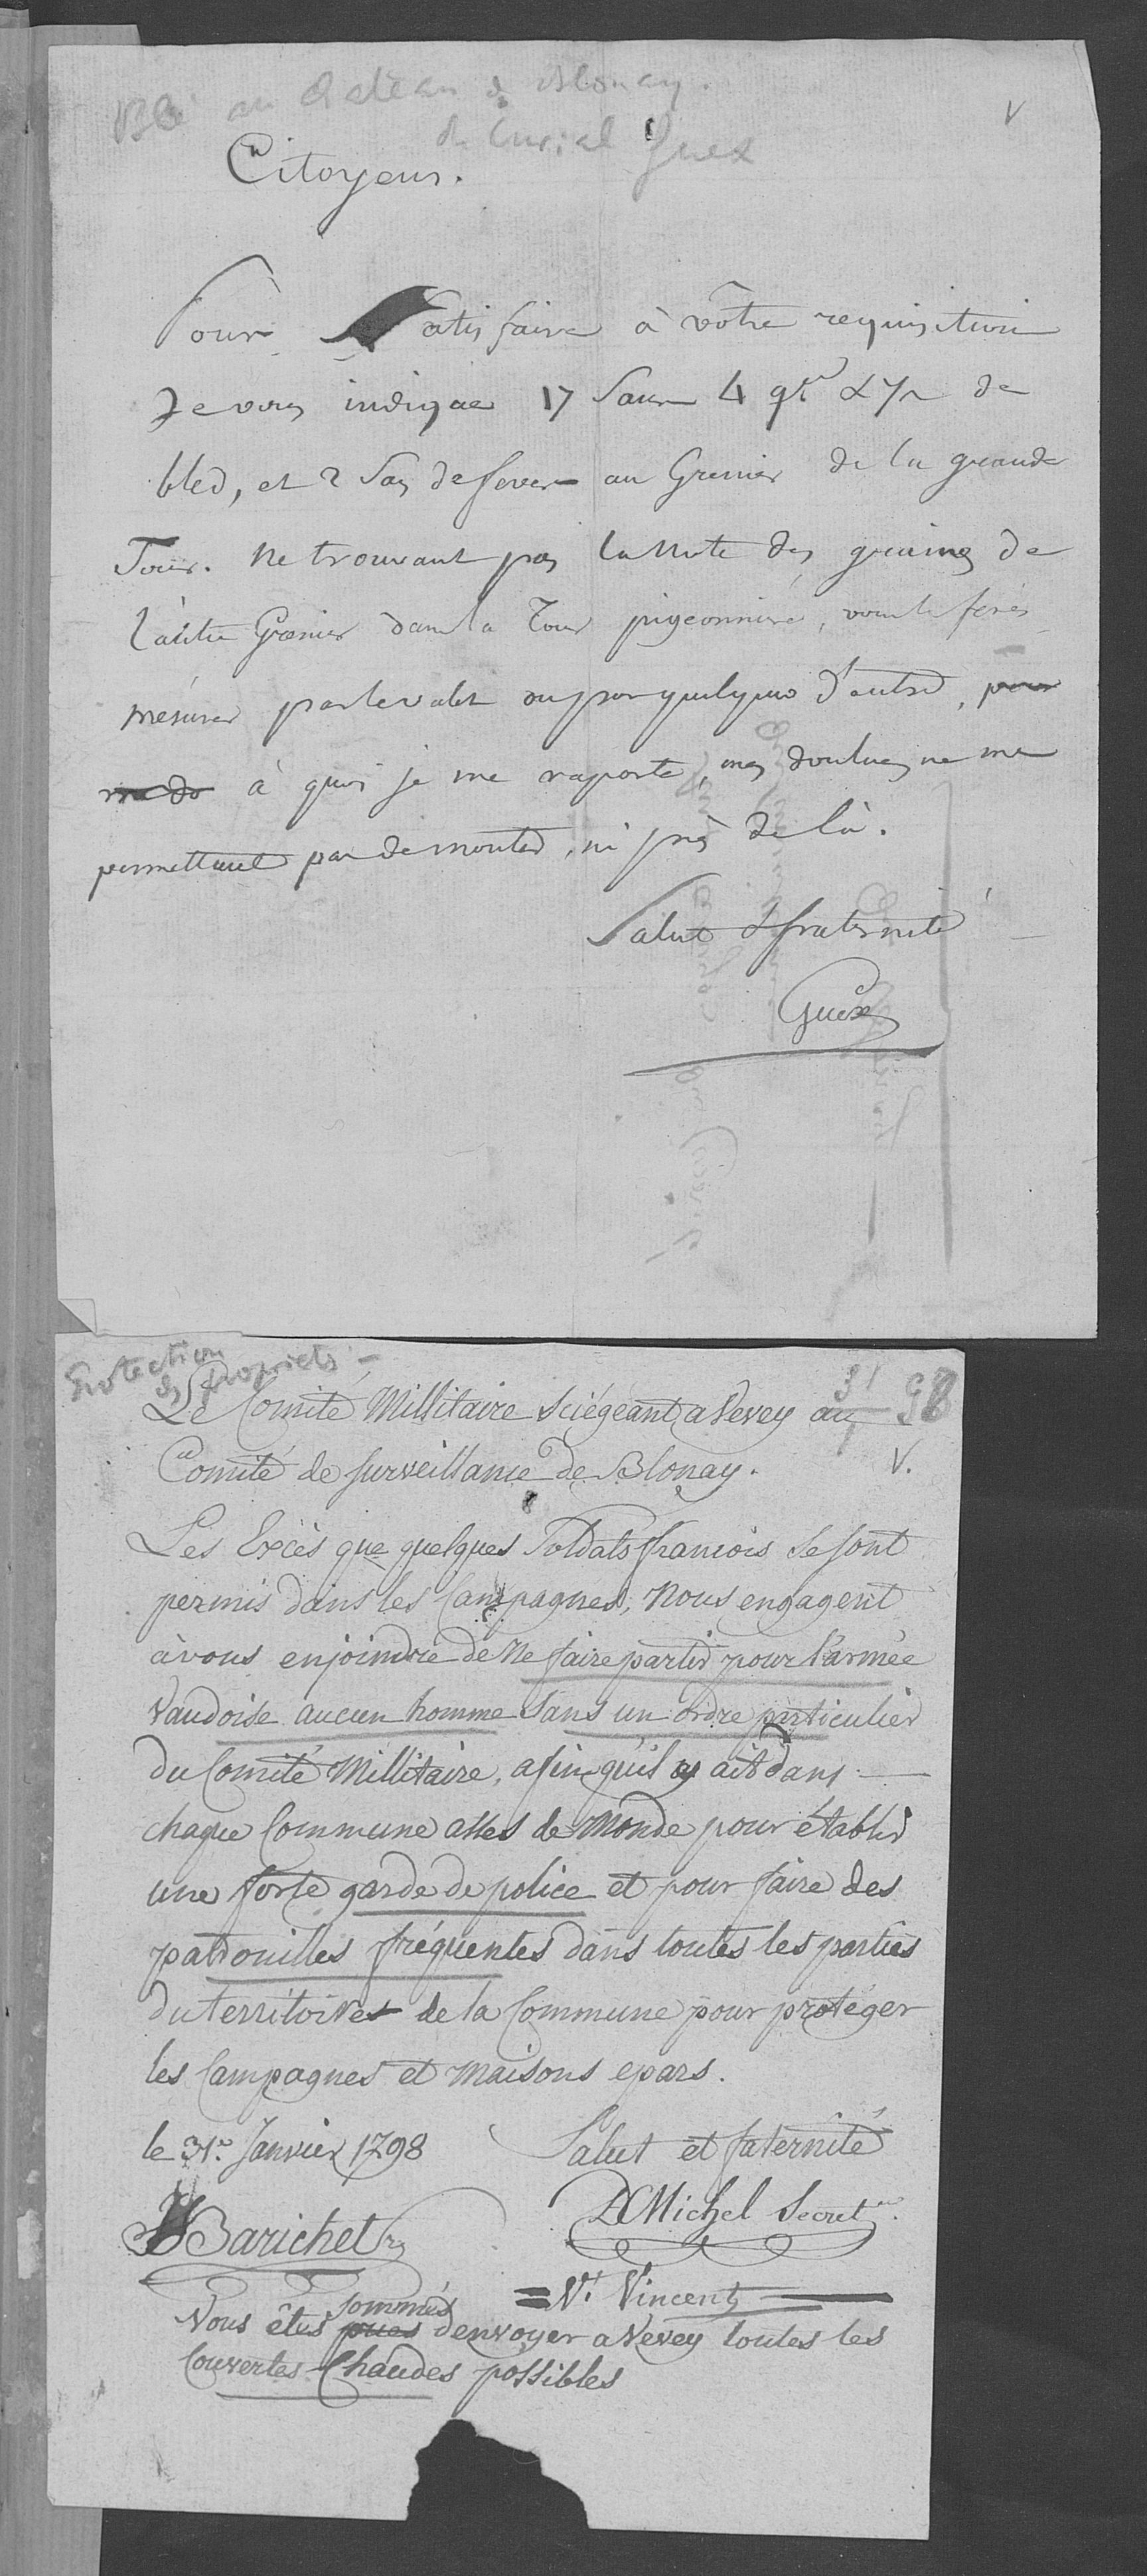 Blé au Château de Blonay.
de Curial Guex
V
Citoyens.
Pour Satisfaire à vôtre requisition
Je vous indique 17 Sacs 4 qt.
bled, et 2 Sacs de feves au Grenier de la grande
Tour. Ne trouvant pas la Note des graines de
l'autre Grenier dans la Tour pigeonniere, vous le ferés
mésurer par le valet ou par quelqu'un d'autre,
à quoi je me raporte, mes douleurs ne me
permettant pas de monter, ni près de là.
Salut & fraternité
Guex
Protection
des propriets
31 98
V.
Le Comité Millitaire Sciégeant a Vevey au
Comité de surveillance de Blonay.
Les Excès que quelques Soldats francois Se sont
permis dans les Campagnes, Nous engagent
à vous enjoindre de Ne faire partir pour l'armée
Vaudoise aucun homme Sans un ordre particulier
du Comité Millitaire, afin qu'il y ait dans
chaque Commune asses de Monde pour établir
une forte garde de police et pour faire des
patrouilles fréquentes dans toutes les parties
du territoires de la Commune pour protéger
les Campagnes et Maisons epars.
le 31e. Janvier 1798 Salut et faternité
DMichel Secret.re
Barichet
= Nt Vincent
sommés
Vous êtes denvoyer a Vevey toutes les
Couvertes Chaudes possibles